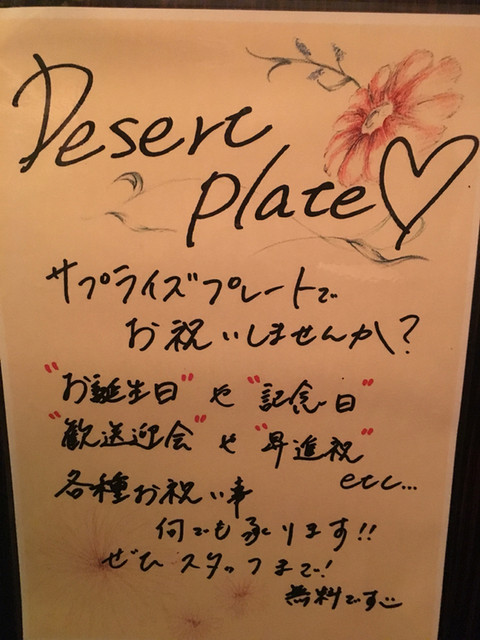 Desert
plate♡
サプライズプレートで
お祝いしませんか?
"お誕生日"や"記念日"
"歓送迎会"や"昇進祝"
etc...
各種お祝い事
何でも承ります!!
ぜひスタッフまで!
無料です